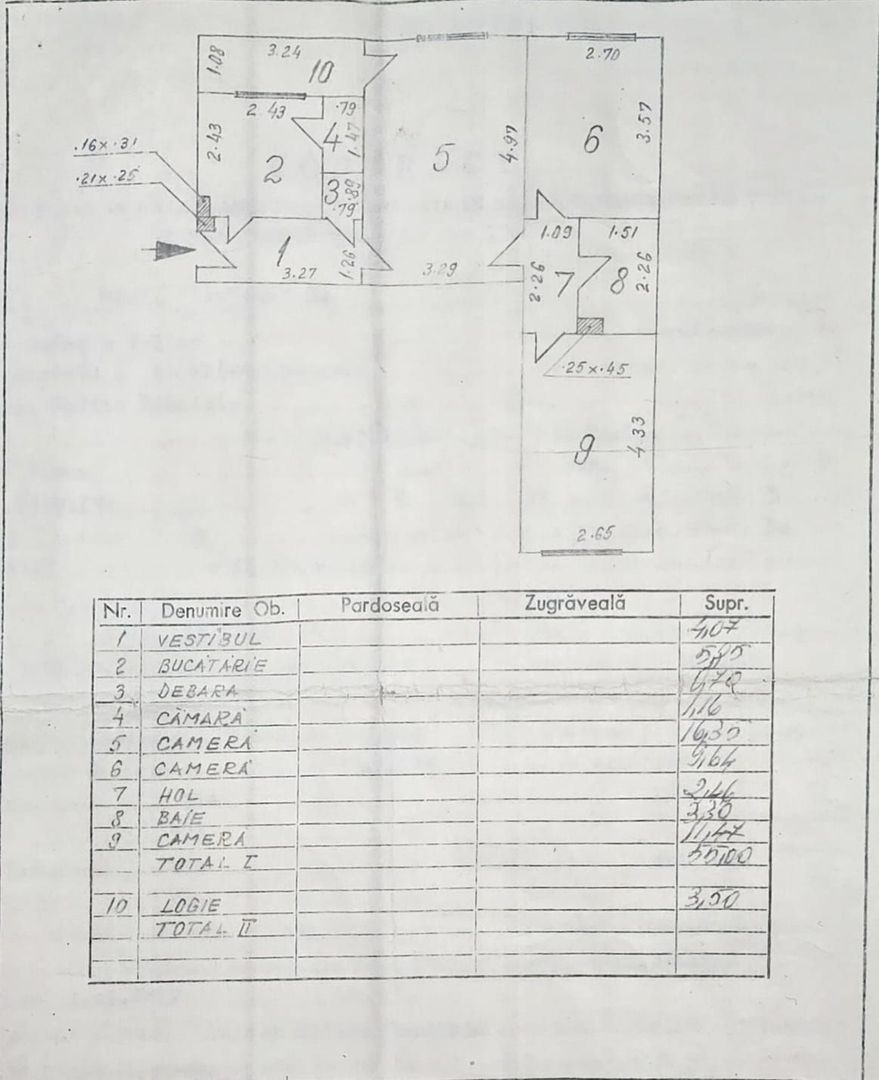 1.08
3.24
10
2.70
2.43
.79
2.43
4
1.47
5
4.97
6
3.57
.16x.31
2
.21x.25
3
.89
.79
1
3.27
1.26
3.29
1.09
1.51
2.26
7
8
2.26
.25x.45
9
4.33
2.65
Nr. Denumire Ob. Pardoseală Zugrăveală Supr.
1 VESTIBUL 4,07
2 BUCĂTĂRIE 5,85
3 DEBARA 0,70
4 CĂMARĂ 1,16
5 CAMERĂ 16,35
6 CAMERĂ 9,64
7 HOL 2,46
8 BAIE 3,30
9 CAMERĂ 11,47
TOTAL I 55,00
10 LOGIE 3,50
TOTAL II